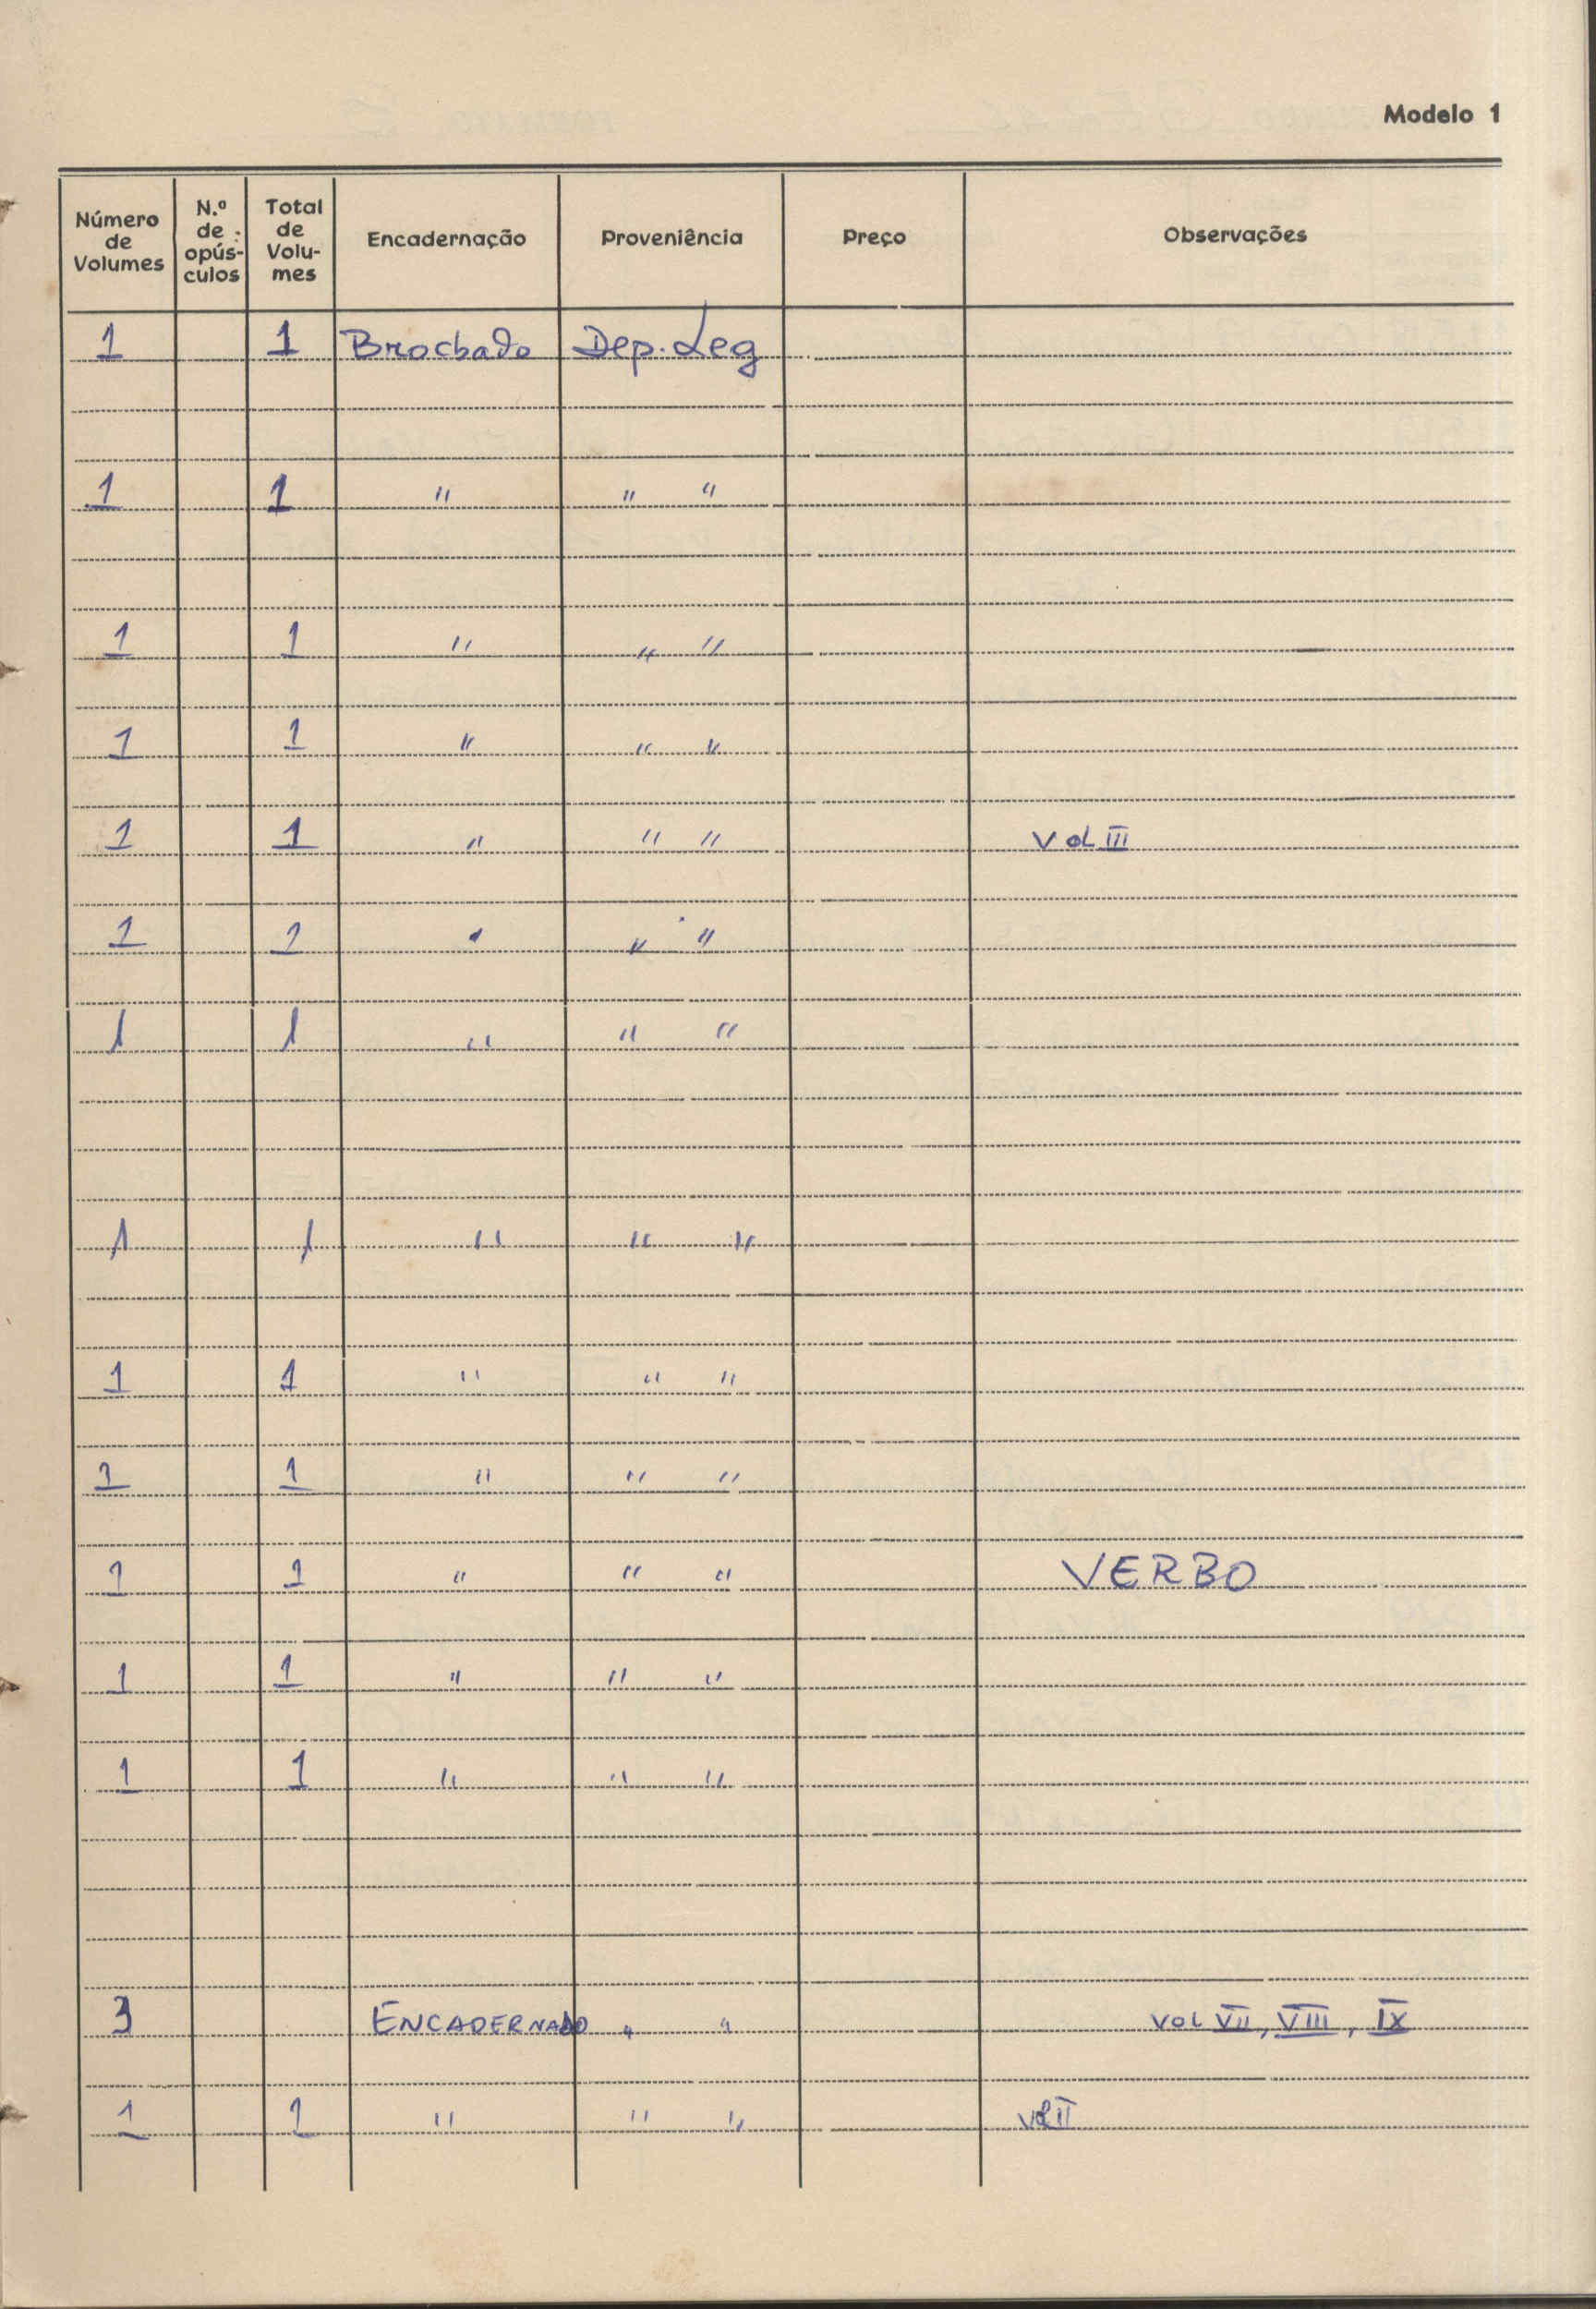 Modelo 1
Número de Volumes N.º de opús-culos Total de Volu-mes Encadernação Proveniência Preço Observações
1 1 Brochado Dep. Leg
1 1 " " "
1 1 " " "
1 1 " " "
1 1 " " " Vol III
1 1 " " "
1 1 " " "
1 1 " " "
1 1 " " "
1 1 " " "
1 1 " " " VERBO
1 1 " " "
1 1 " " "
3 ENCADERNADO " " VOL VII, VIII, IX
1 1 " " " Vol II